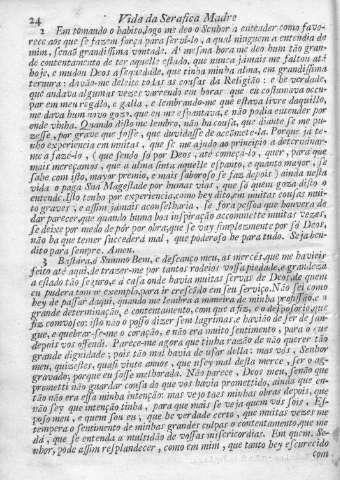 24 Vida da Serafica Madre
2 Em tomando o habito, logo me deo o Senhor a entender como favo-
rece aos que se fazem força para servil-lo, a qual ninguem entendia de
mim, senaõ grandissima vontade. A' mesma hora me deo hum taõ gran-
de contentamento de ter aquelle estado, que nunca jamais me faltou até
hoje, e mudou Deos a sequidade, que tinha minha alma, em grandissima
ternura: davaõ-me deleite todas as cousas da Religiaõ: e he verdade,
que andava algumas vezes varrendo em horas que eu costumava occu-
par em meu regalo, e galla, e lembrando-me que estava livre daquillo,
me dava hum novo gozo, que eu me espantava, e naõ podia entender por
onde vinha. Quando disto me lembro, naõ ha cousa, que diante se me pu-
zesse, por grave que fosse, que duvidasse de accometela. Porque já te-
nho experiencia em muitas, que se me ajudo ao principio a determinar-
me a fazelo, (que sendo só por Deos, até começalo, quer, para que
mais mereçamos, que a alma sinta aquelle espanto, e quanto mayor, se
sahe com isto, mayor premio, e mais saboroso se faz depois) ainda nesta
vida o paga Sua Magestade por humas vias, que só quem goza disto o
entende. Isto tenho por experiencia, como hey dito, em muitas cousas mui-
to graves; e assim jámais aconselharia, se fora pessoa que houvera de
dar parecer, que quando huma boa inspiração accommette muitas vezes,
se deixe por medo de pór por obra, que se vay simplezmente por só Deos,
naõ ha que temer succederá mal, que poderoso he para tudo. Seja ben-
dito para sempre. Amen.
3 Bastára, ó Summo Bem, e descanço meu, as mercês, que me havieis
feito até aqui, de trazer-me por tantos rodeios vossa piedade, e grandeza
a estado taõ seguro, e a casa onde havia muitas servas de Deos, de quem
eu pudera tomar exemplo, para ir crescendo em seu serviço. Naõ sei como
hey de passar daqui, quando me lembro a maneira de minha profissaõ, e a
grande determinaçaõ, e contentamento, com que a fiz, e o desposorio, que
fiz comvosco: isto naõ o posso dizer sem lagrimas, e haviaõ de ser de san-
gue, e quebrar-se-me o coraçaõ, e naõ era muito sentimento, para o que
depois vos offendi. Parece-me agora que tinha razaõ de naõ querer taõ
grande dignidade; pois taõ mal havia de usar della: mas vós, Senhor
meu, quizestes, quasi vinte annos, que usey mal desta mercê, ser o ag-
gravado, porque eu fosse melhorada. Naõ parece, Deos meu, senaõ que
prometti naõ guardar cousa do que vos havia promettido, ainda que en-
taõ naõ era essa minha intençaõ: mas vejo taes minhas obras depois, que
naõ sey que intençaõ tinha, para que mais se veja quem vós sois, Es-
poso meu, e quem sou eu; que he verdade certo, que muitas vezes me
tempera o sentimento de minhas grandes culpas o contentamento, que me
dá, que se entenda a multidaõ de vossas misericordias. Em quem, Se-
nhor, pode assim resplandecer, como em mim, que tanto hey escurecido
com